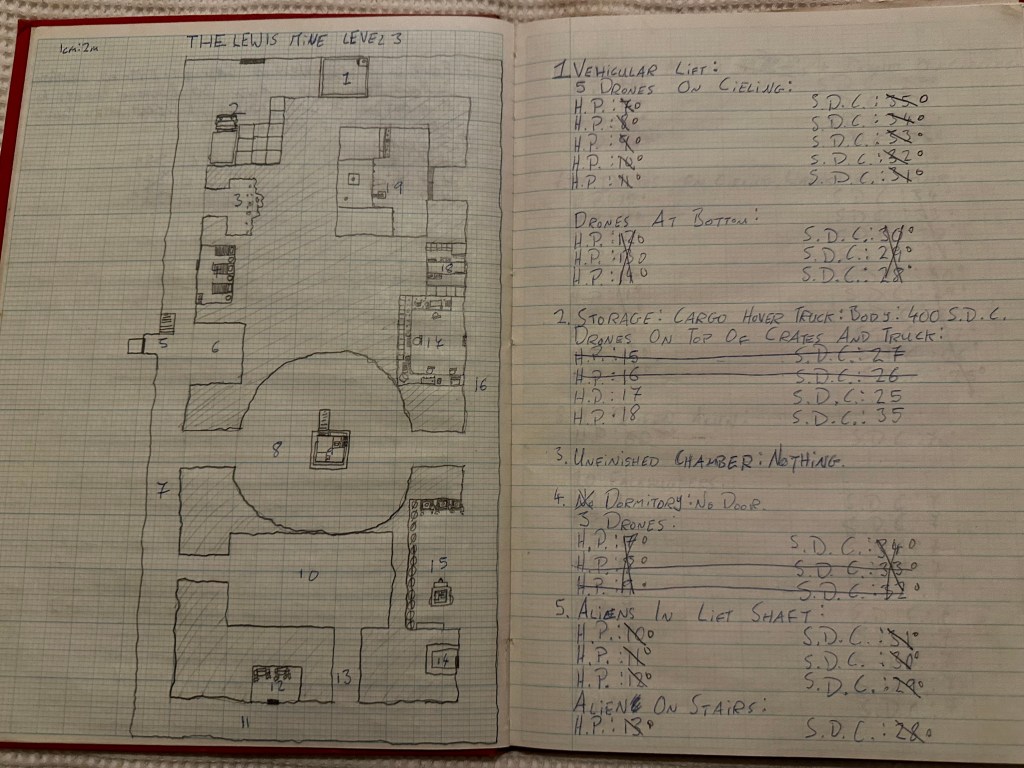 THE LEWIS MINE LEVEL 3
1cm:2m
1
2
3
9
13
5
6
17
16
8
7
10
15
14
13
12
11
1. VEHICULAR LIFT:
5 DRONES ON CIELING:
H.P.: 7 0 S.D.C.: 35 0
H.P.: 8 0 S.D.C.: 34 0
H.P.: 9 0 S.D.C.: 33 0
H.P.: 10 0 S.D.C.: 32 0
H.P.: 11 0 S.D.C.: 31 0
DRONES AT BOTTOM:
H.P.: 12 0 S.D.C.: 30 0
H.P.: 13 0 S.D.C.: 29 0
H.P.: 14 0 S.D.C.: 28 0
2. STORAGE: CARGO HOVER TRUCK: BODY: 400 S.D.C.
DRONES ON TOP OF CRATES AND TRUCK:
H.P.: 15 S.D.C.: 27
H.P.: 16 S.D.C.: 26
H.P.: 17 S.D.C.: 25
H.P.: 18 S.D.C.: 35
3. UNFINISHED CHAMBER: NOTHING.
4. DORMITORY: NO DOOR.
3 DRONES:
H.P.: 7 0 S.D.C.: 34 0
H.P.: 8 0 S.D.C.: 33 0
H.P.: S.D.C.: 32 0
5. ALIENS IN LIFT SHAFT:
H.P.: 10 0 S.D.C.: 31 0
H.P.: 11 0 S.D.C.: 30 0
H.P.: 12 0 S.D.C.: 29 0
ALIEN ON STAIRS:
H.P.: 13 0 S.D.C.: 28 0